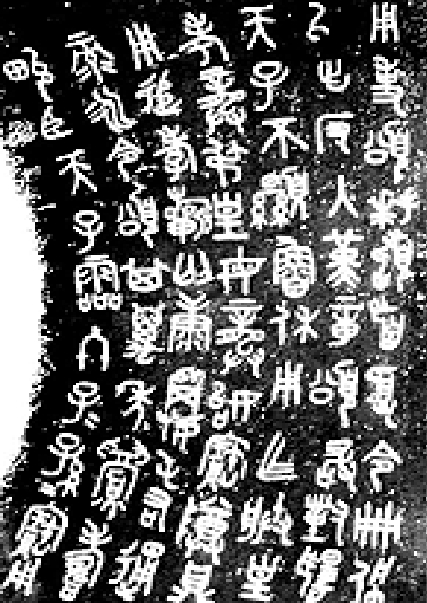 用事頌拜䭫首受令冊佩
以出反入堇章頌敢對揚
天子不顯魯休用乍朕皇
考龔弔皇母龔姒寶尊鼎
用追孝祈匄康𩁹屯右通
彔永令頌其萬年眉壽
畯臣天子霝冬子=孫=寶用